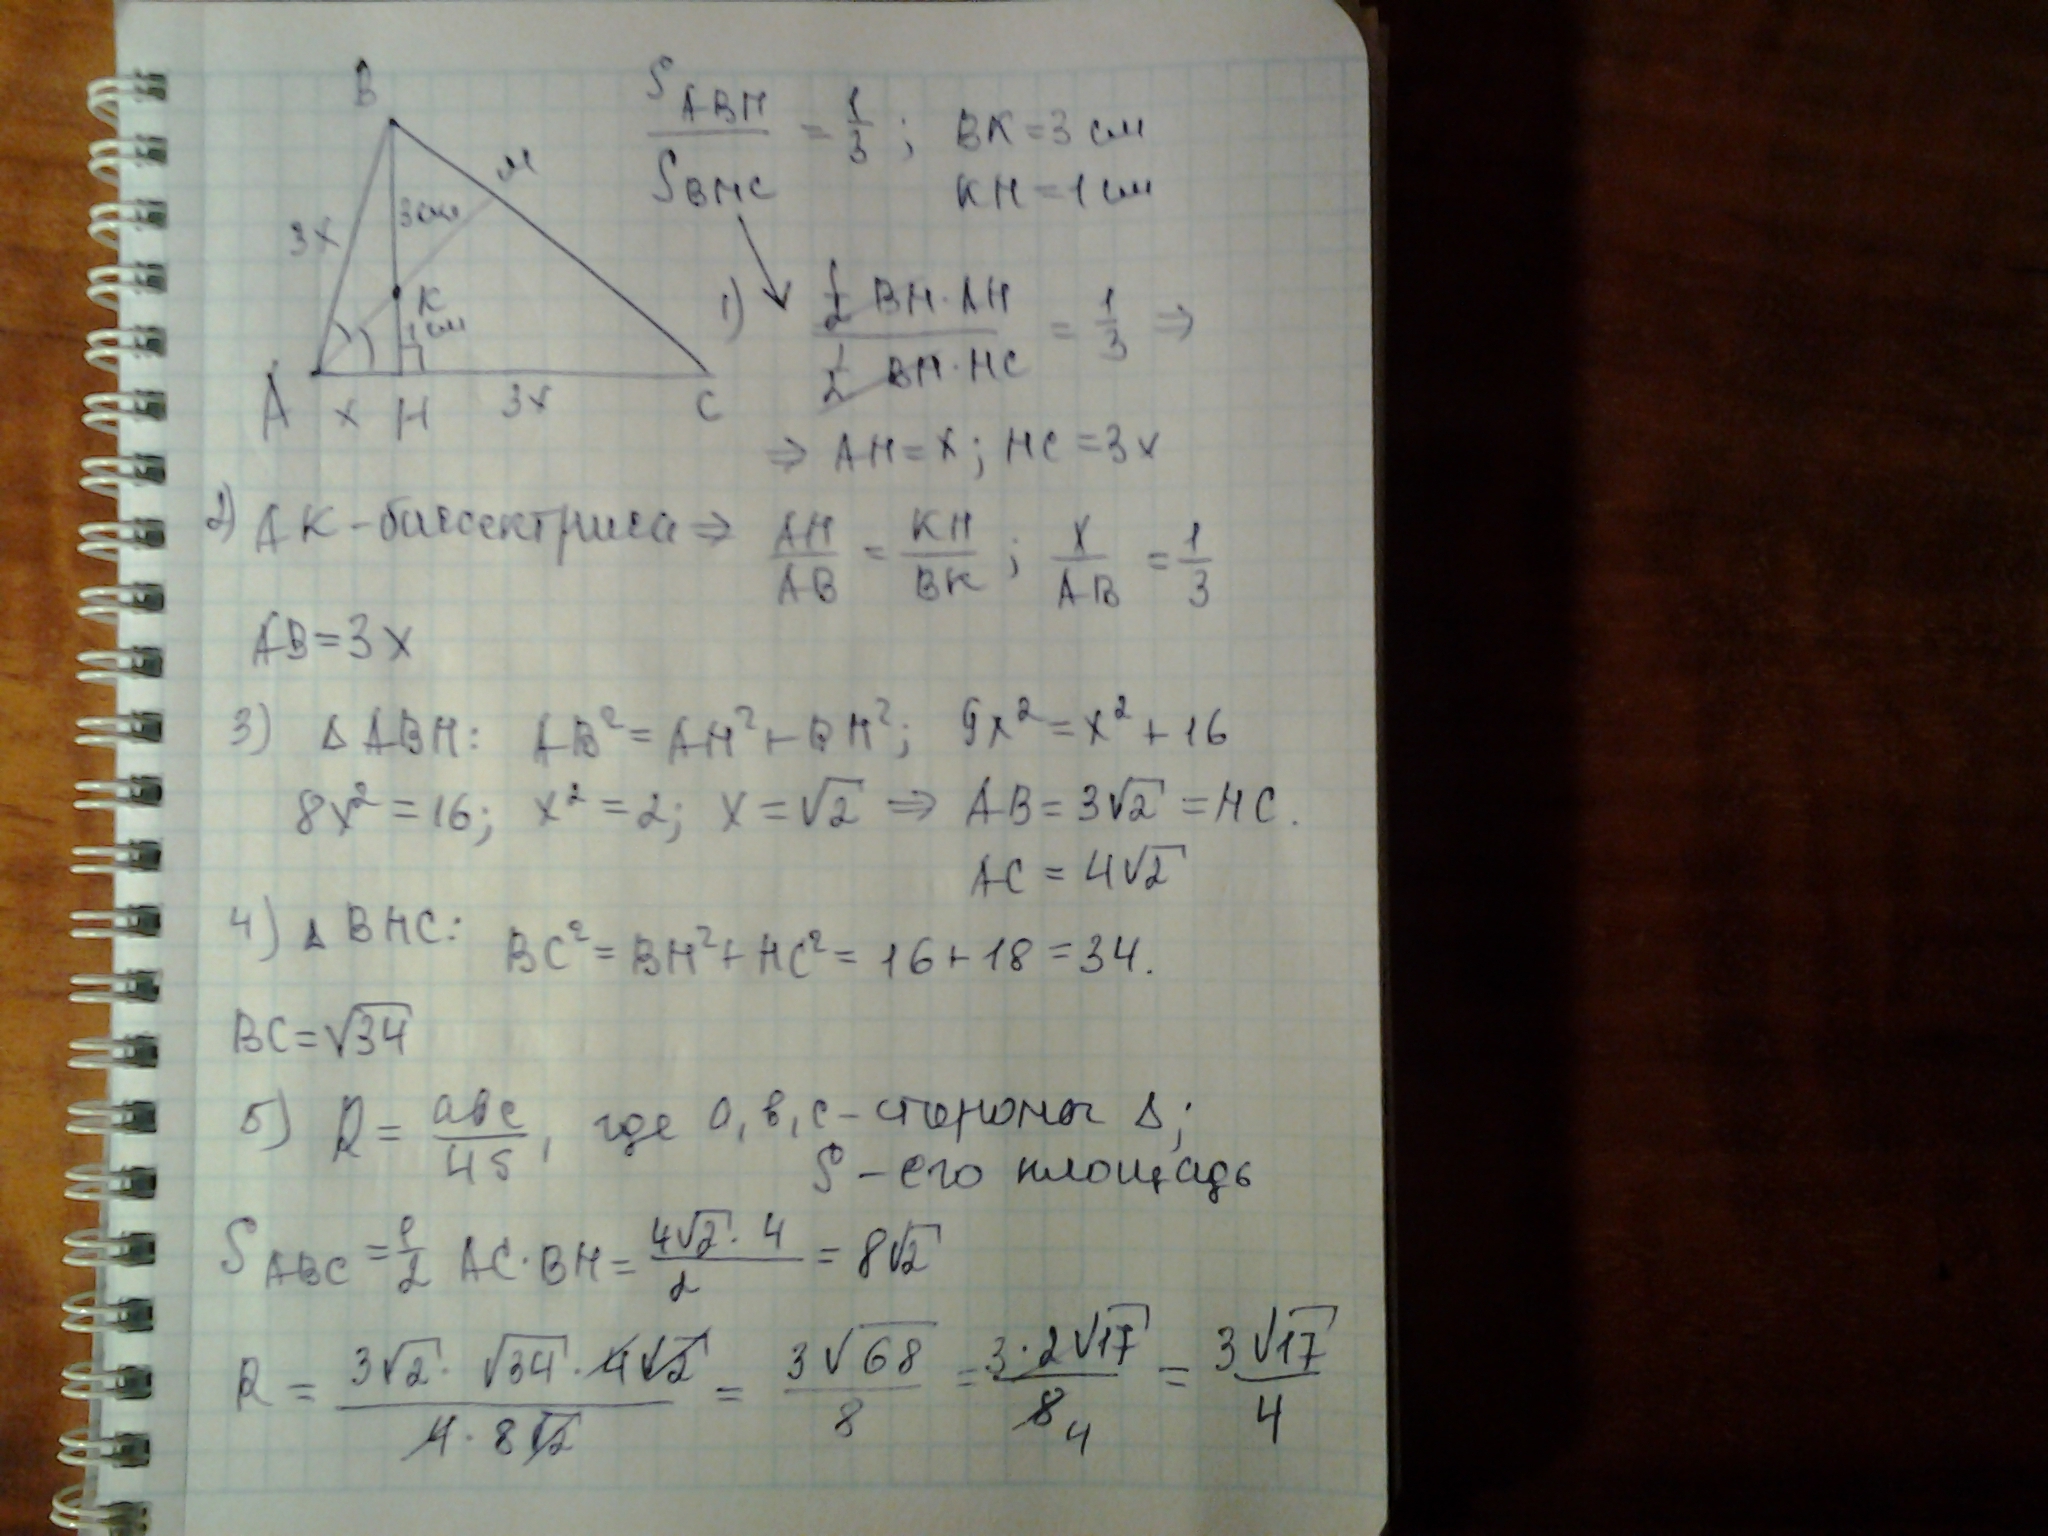 B
M
3x
3 см
K
1 см
A
x
H
3x
C
S ABH / S BHC = 1/3 ; BK = 3 см
KH = 1 см
1) 1/2 BH · AH / 1/2 BH · HC = 1/3 ⇒
⇒ AH = x ; HC = 3x
2) AK - биссектриса ⇒ AH/AB = KH/BK ; x/AB = 1/3
AB = 3x
3) Δ ABH: AB² = AH² + BH² ; 9x² = x² + 16
8x² = 16 ; x² = 2 ; x = √2 ⇒ AB = 3√2 = HC .
AC = 4√2
4) Δ BHC: BC² = BH² + HC² = 16 + 18 = 34 .
BC = √34
5) R = abc/4S , где a, b, c - стороны Δ ;
S - его площадь
S ABC = 1/2 AC · BH = 4√2 · 4 / 2 = 8√2
R = 3√2 · √34 · 4√2 / 4 · 8√2 = 3√68 / 8 = 3 · 2√17 / 8 4 = 3√17 / 4